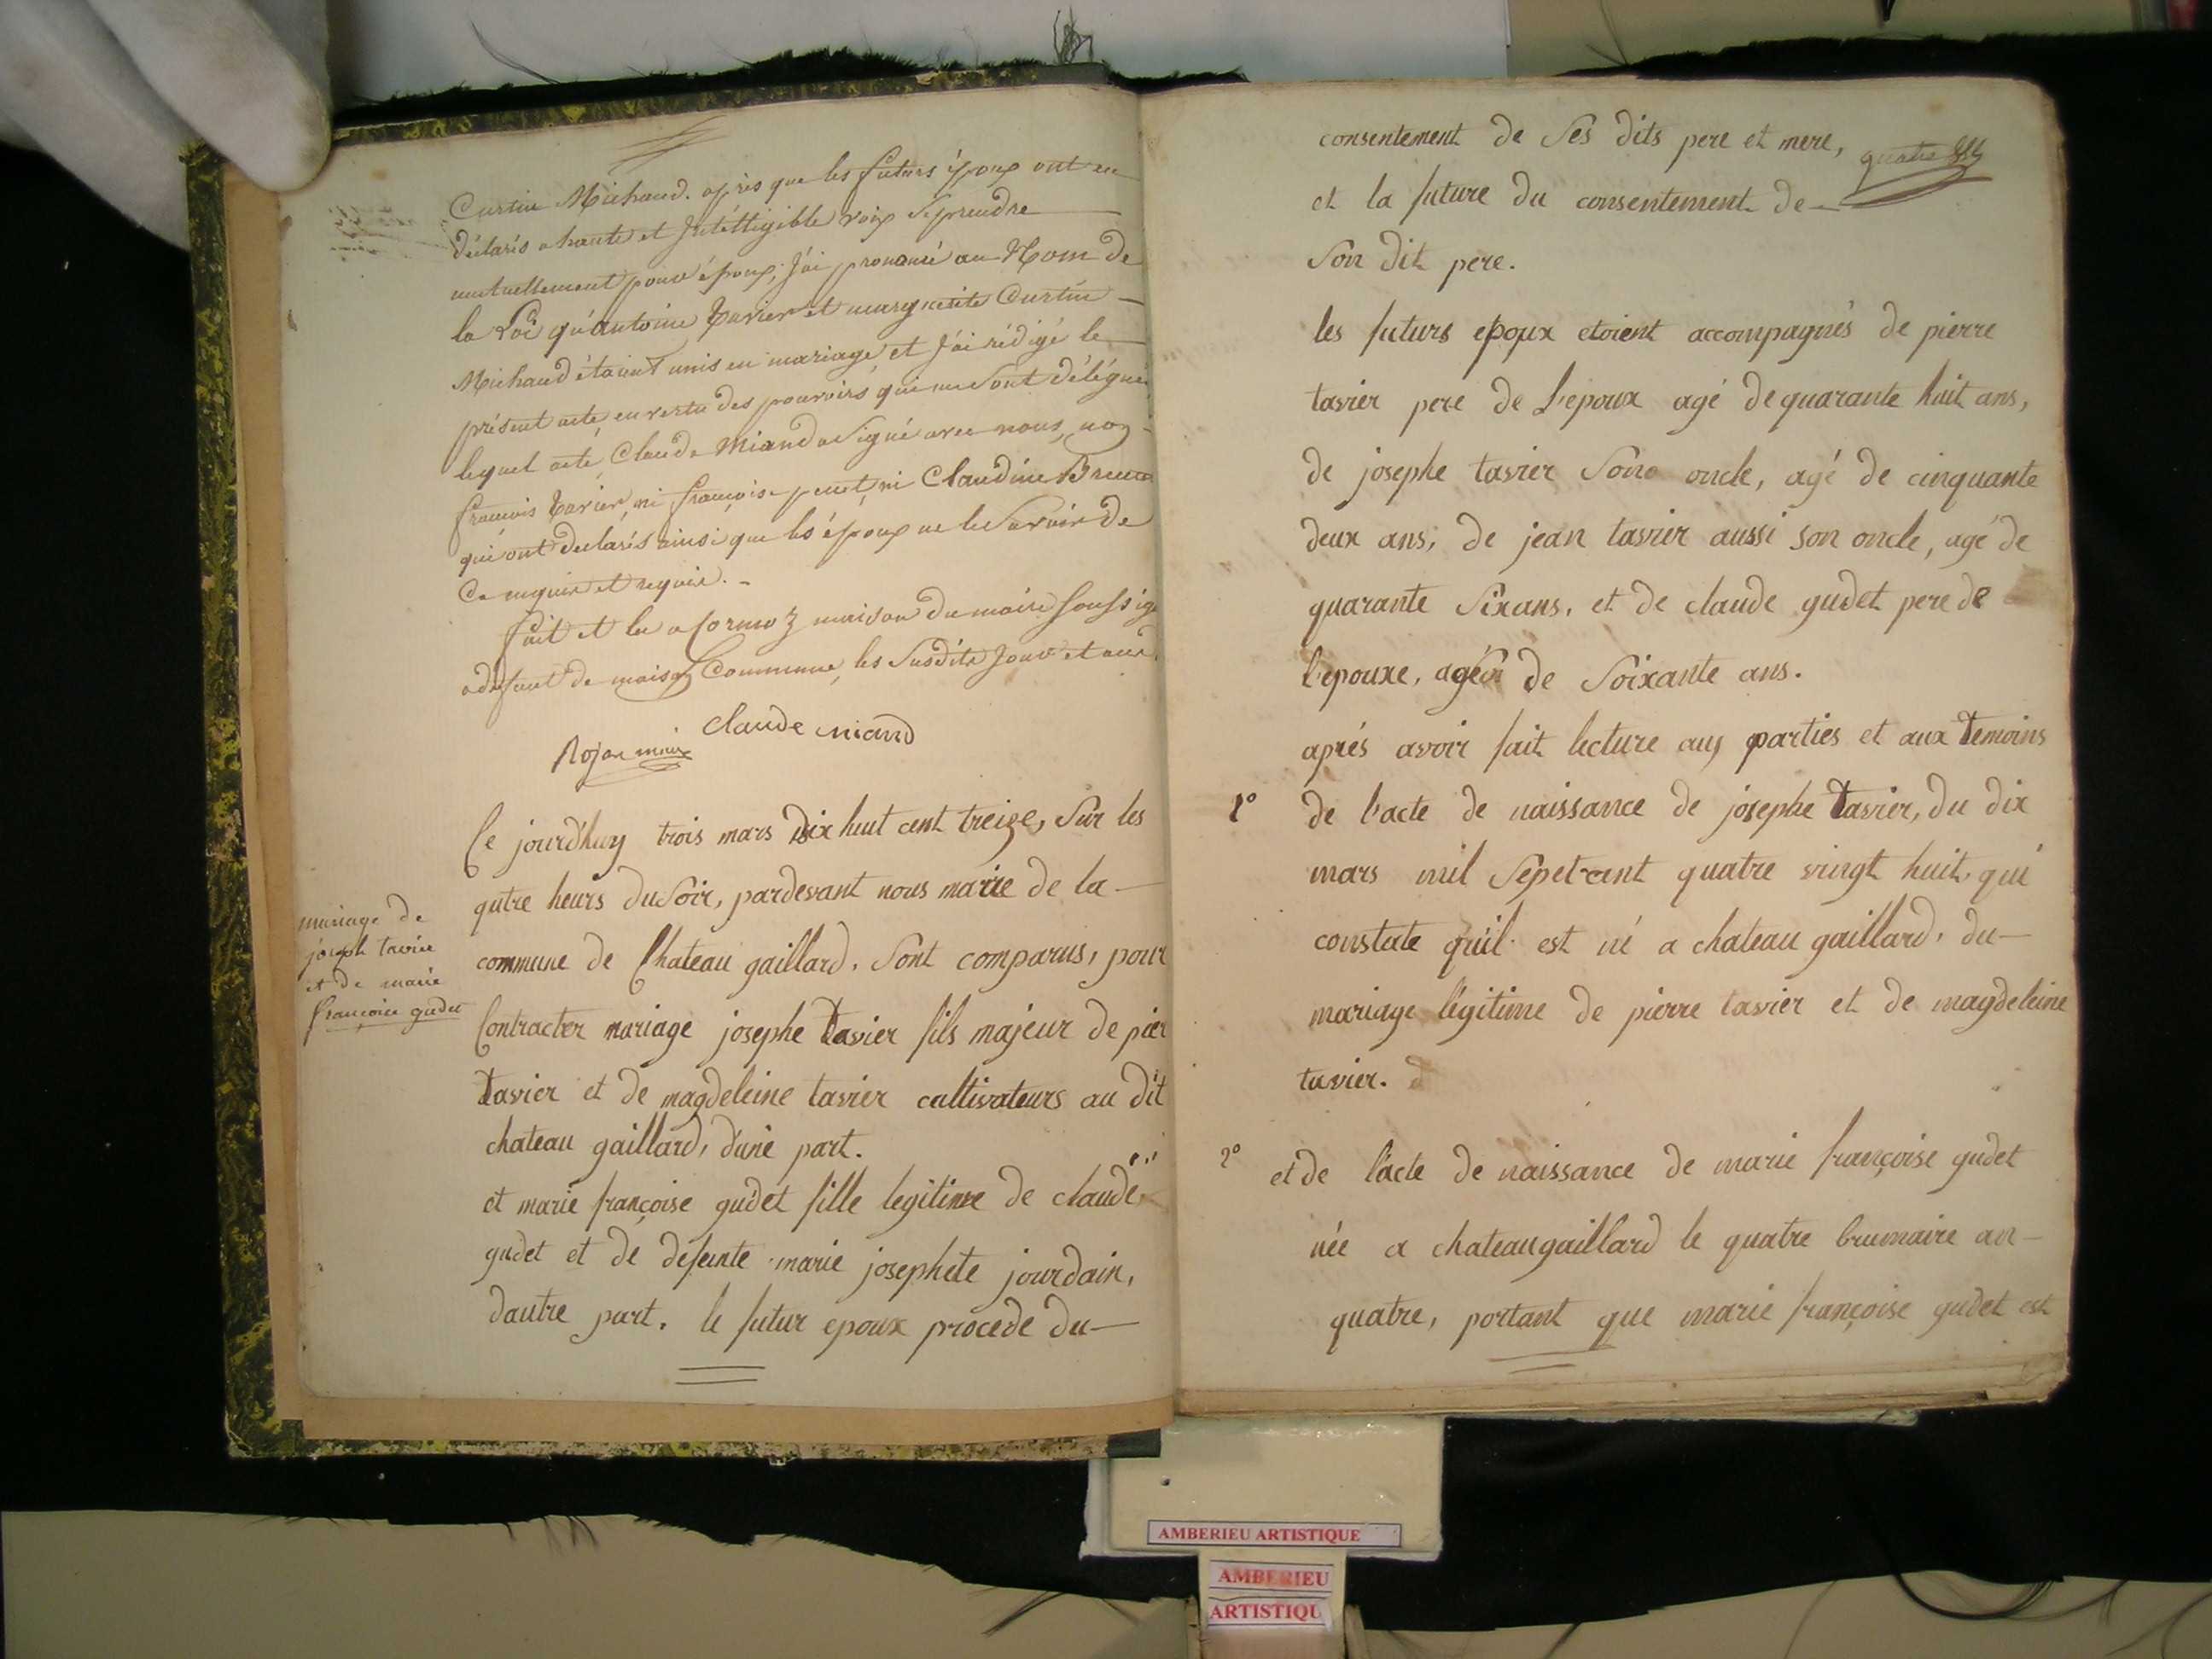 Curtin Michaud. après que les futurs époux ont eu
déclarés a haute et Intélligible voix Se prendre
mutuellement pour époux, j'ai prononcé au Nom de
la Loi qu'antoine tavier et marguerite Curtin
Michaud étaient unis en mariage, et j'ai rédigé le
présent acte, en vertu des pouvoirs qui me Sont délégués
lequel acte, Claude Miand a Signé avec nous, non
françois tavier, ni françoise penet, ni Claudine
qui ont declarés ainsi que les époux ne le Savoir de
Ce enquis et requis.
fait et lu a Cormoz maison du maire Soussig
adefaut de maison Commune, les Susdits Jour et an
Claude miand
Rojon maire
mariage de
joseph tavier
et de marie
françoise gudet
Ce jourd'huy trois mars dix huit cent treize, Sur les
qutre heurs du Soir, pardevant nous marie de la
commune de Chateau gaillard, Sont comparus, pour
Contracter mariage josephe tavier fils majeur de pier
tavier et de magdeleine tavier cultivateurs au dit
chateau gaillard, d'une part.
et marie françoise gudet fille legitime de claude
gudet et de defunte marie josephete jourdain,
dautre part. le futur epoux procede du
quatre
consentement de Ses dits pere et mere,
et la future du consentement de
Son dit pere.
les futurs epoux etoient accompagnés de pierre
tavier pere de L'epoux agé de quarante huit ans,
de josephe tavier Sono oncle, agé de cinquante
deux ans, de jean tavier aussi son oncle, agé de
quarante Six ans, et de claude gudet pere de
l'epouxe, agé de Soixante ans.
aprés avoir fait lecture auy parties et aux temoins
1° de l'acte de naissance de josephe tavier, du dix
mars mil Sepet cent quatre vingt huit, qui
constate qu'il est né a chateau gaillard, du
mariage légitime de pierre tavier et de magdeleine
tavier.
2° et de l'acte de naissance de marie françoise gudet
née a chateaugaillard le quatre brumaire an
quatre, portant que marie françoise gudet est
AMBERIEU ARTISTIQUE
AMBERIEU
ARTISTIQU